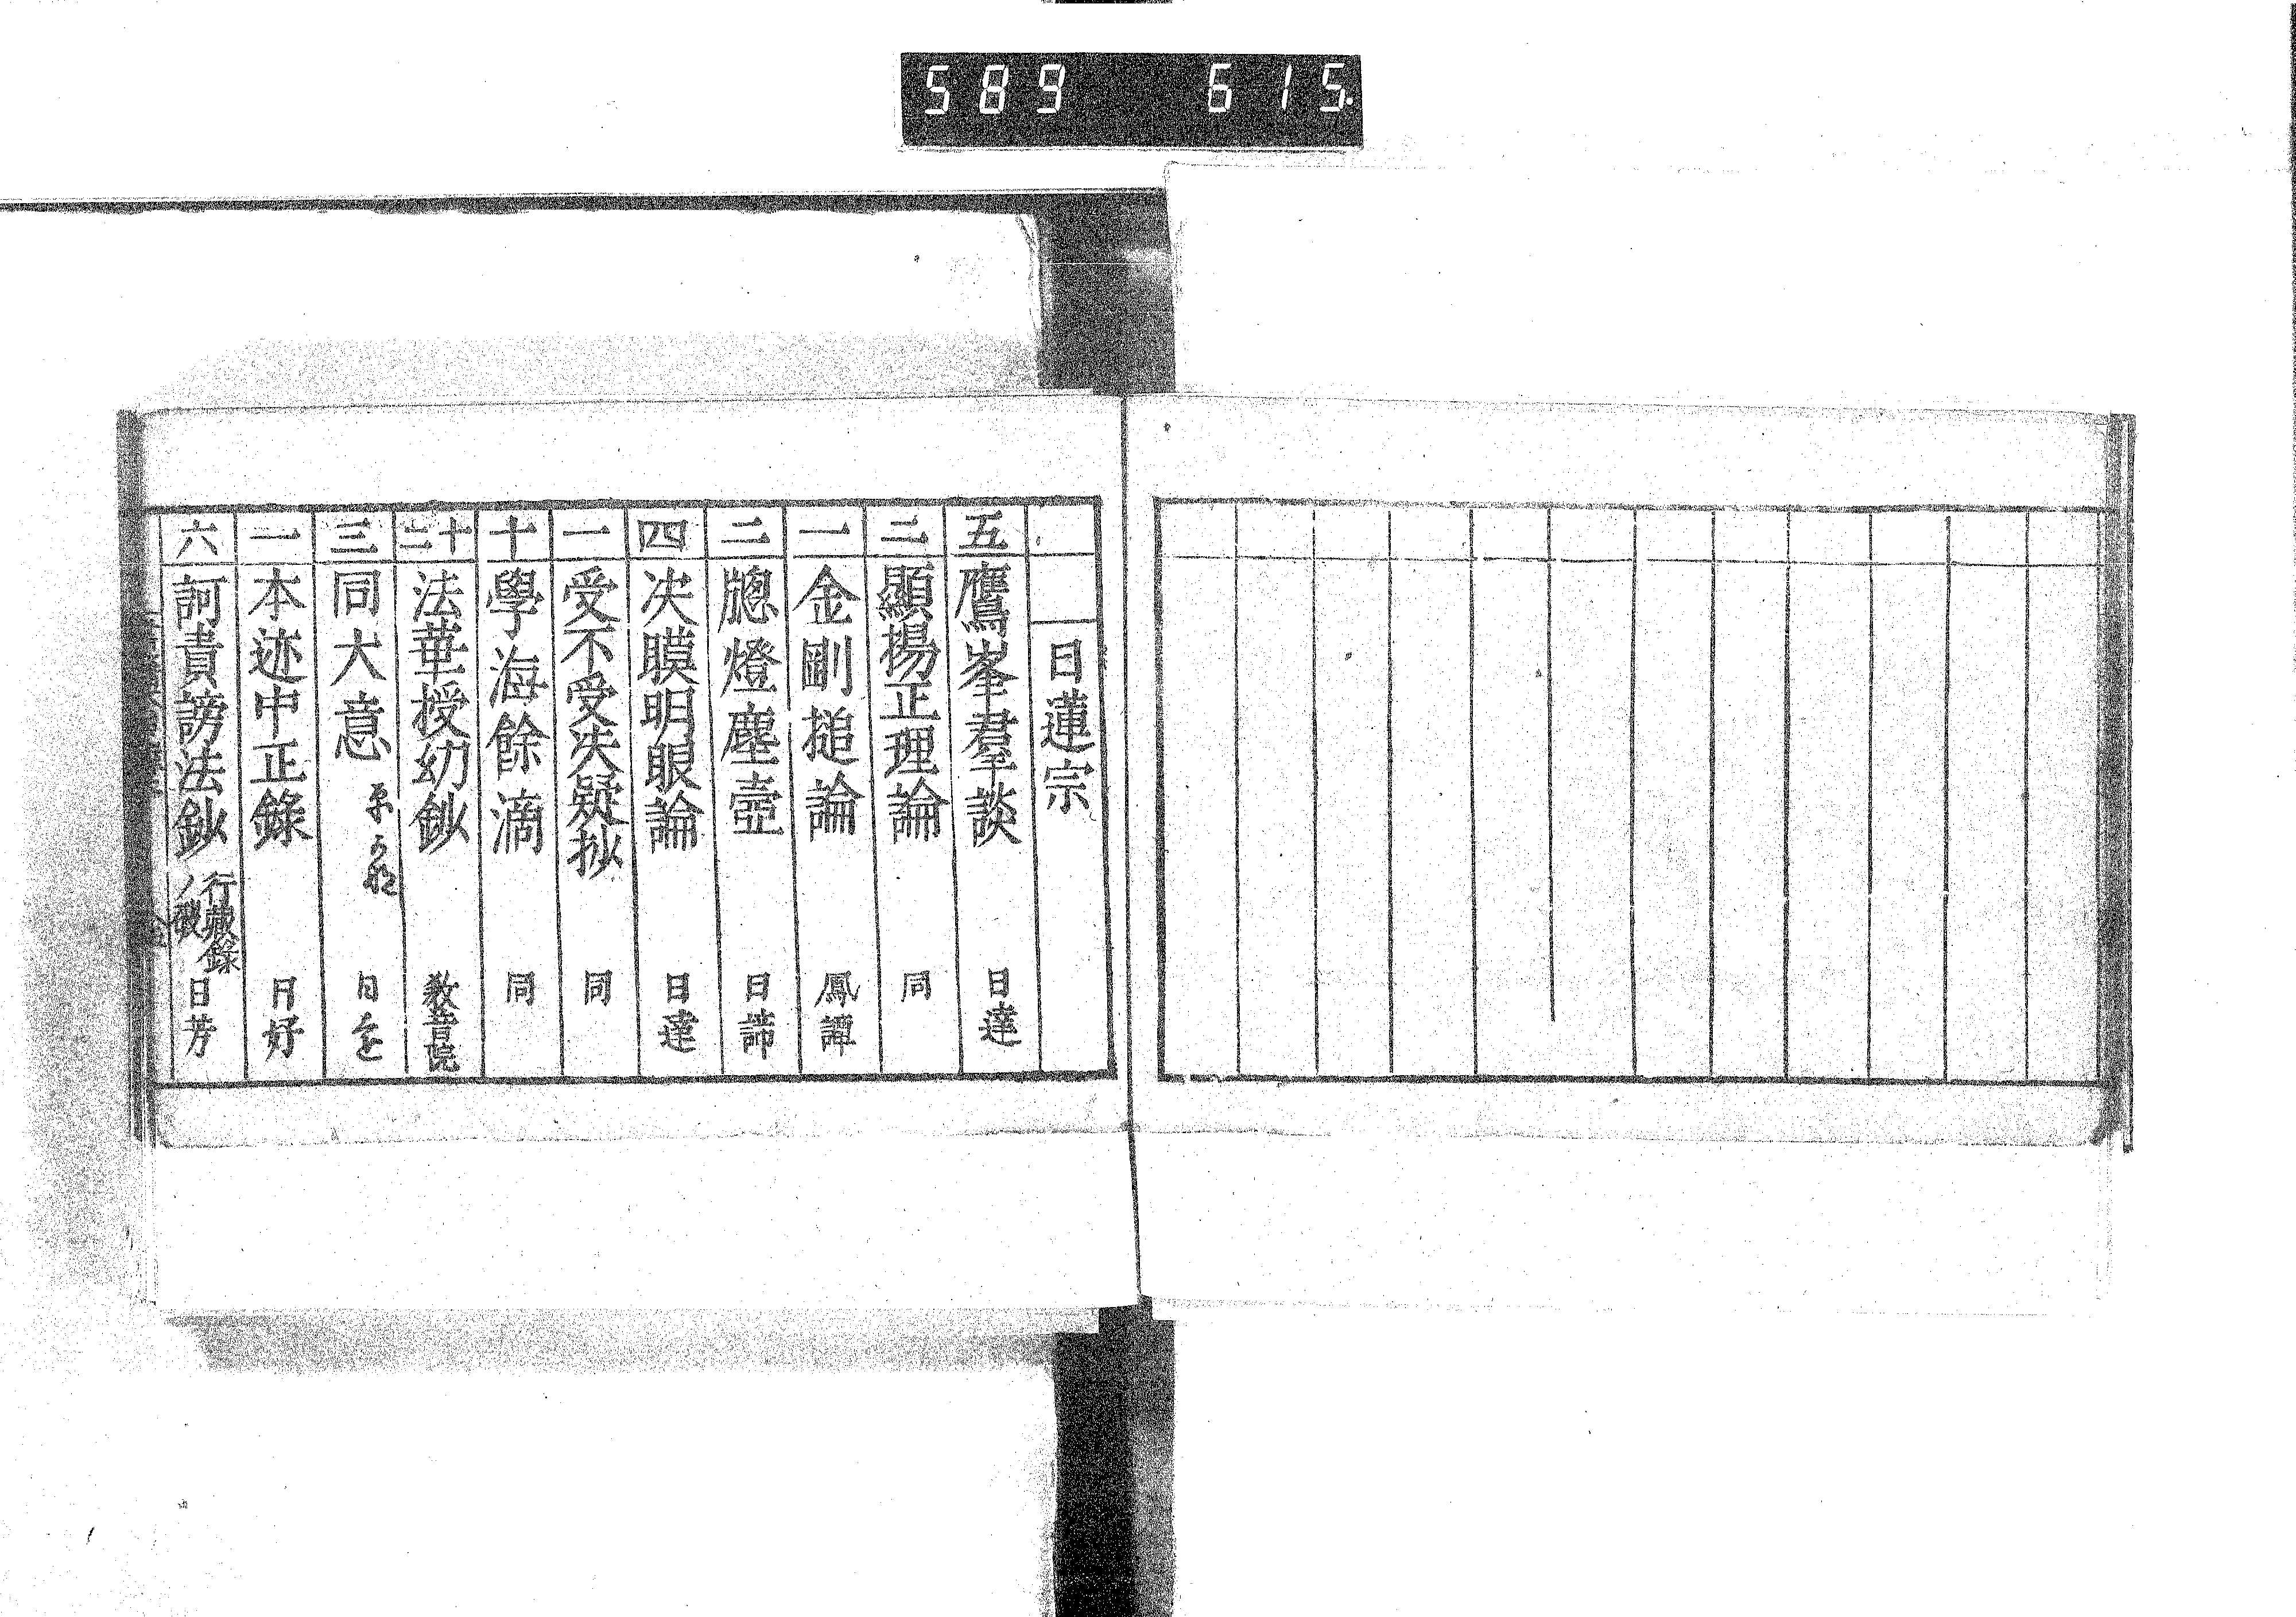 589 615
日蓮宗
五 鷹峯羣談 日達
二 顯揚正理論 同
一 金剛搥論 鳳譚
二 牕燈塵壺 日諦
四 决膜明眼論 日達
一 受不受决疑抄 同
十 學海餘滴 同
十二 法華授幼鈔 教音院
三 同大意 平かな 日
一 本迹中正錄 日好
六 訶責謗法鈔 行藏錄ノ破 日芳